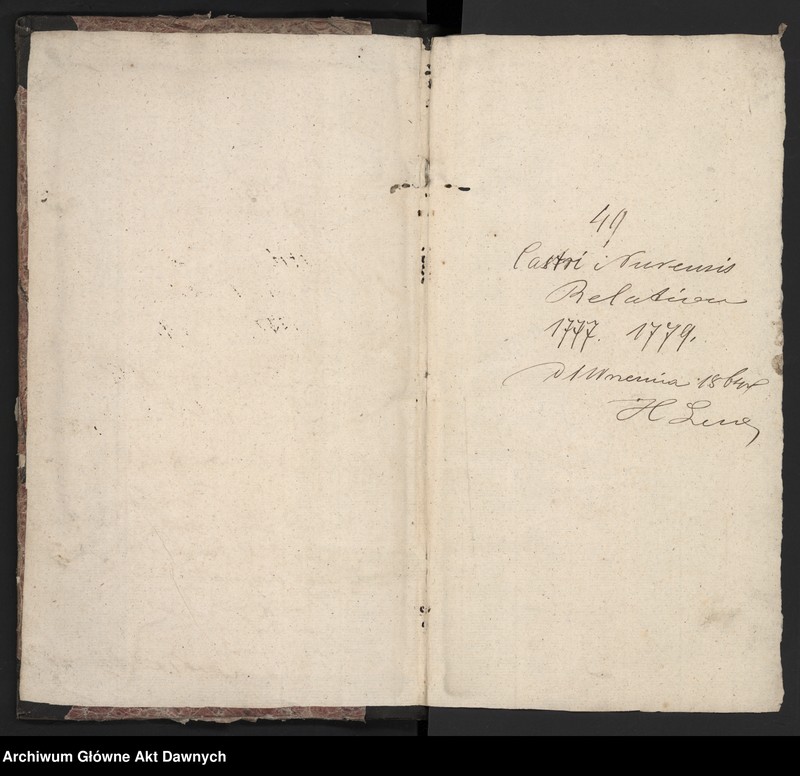 49
Castri Nurensis
Relation
1777. 1779.
D 1 Wrzesnia 1864
H
Archiwum Główne Akt Dawnych